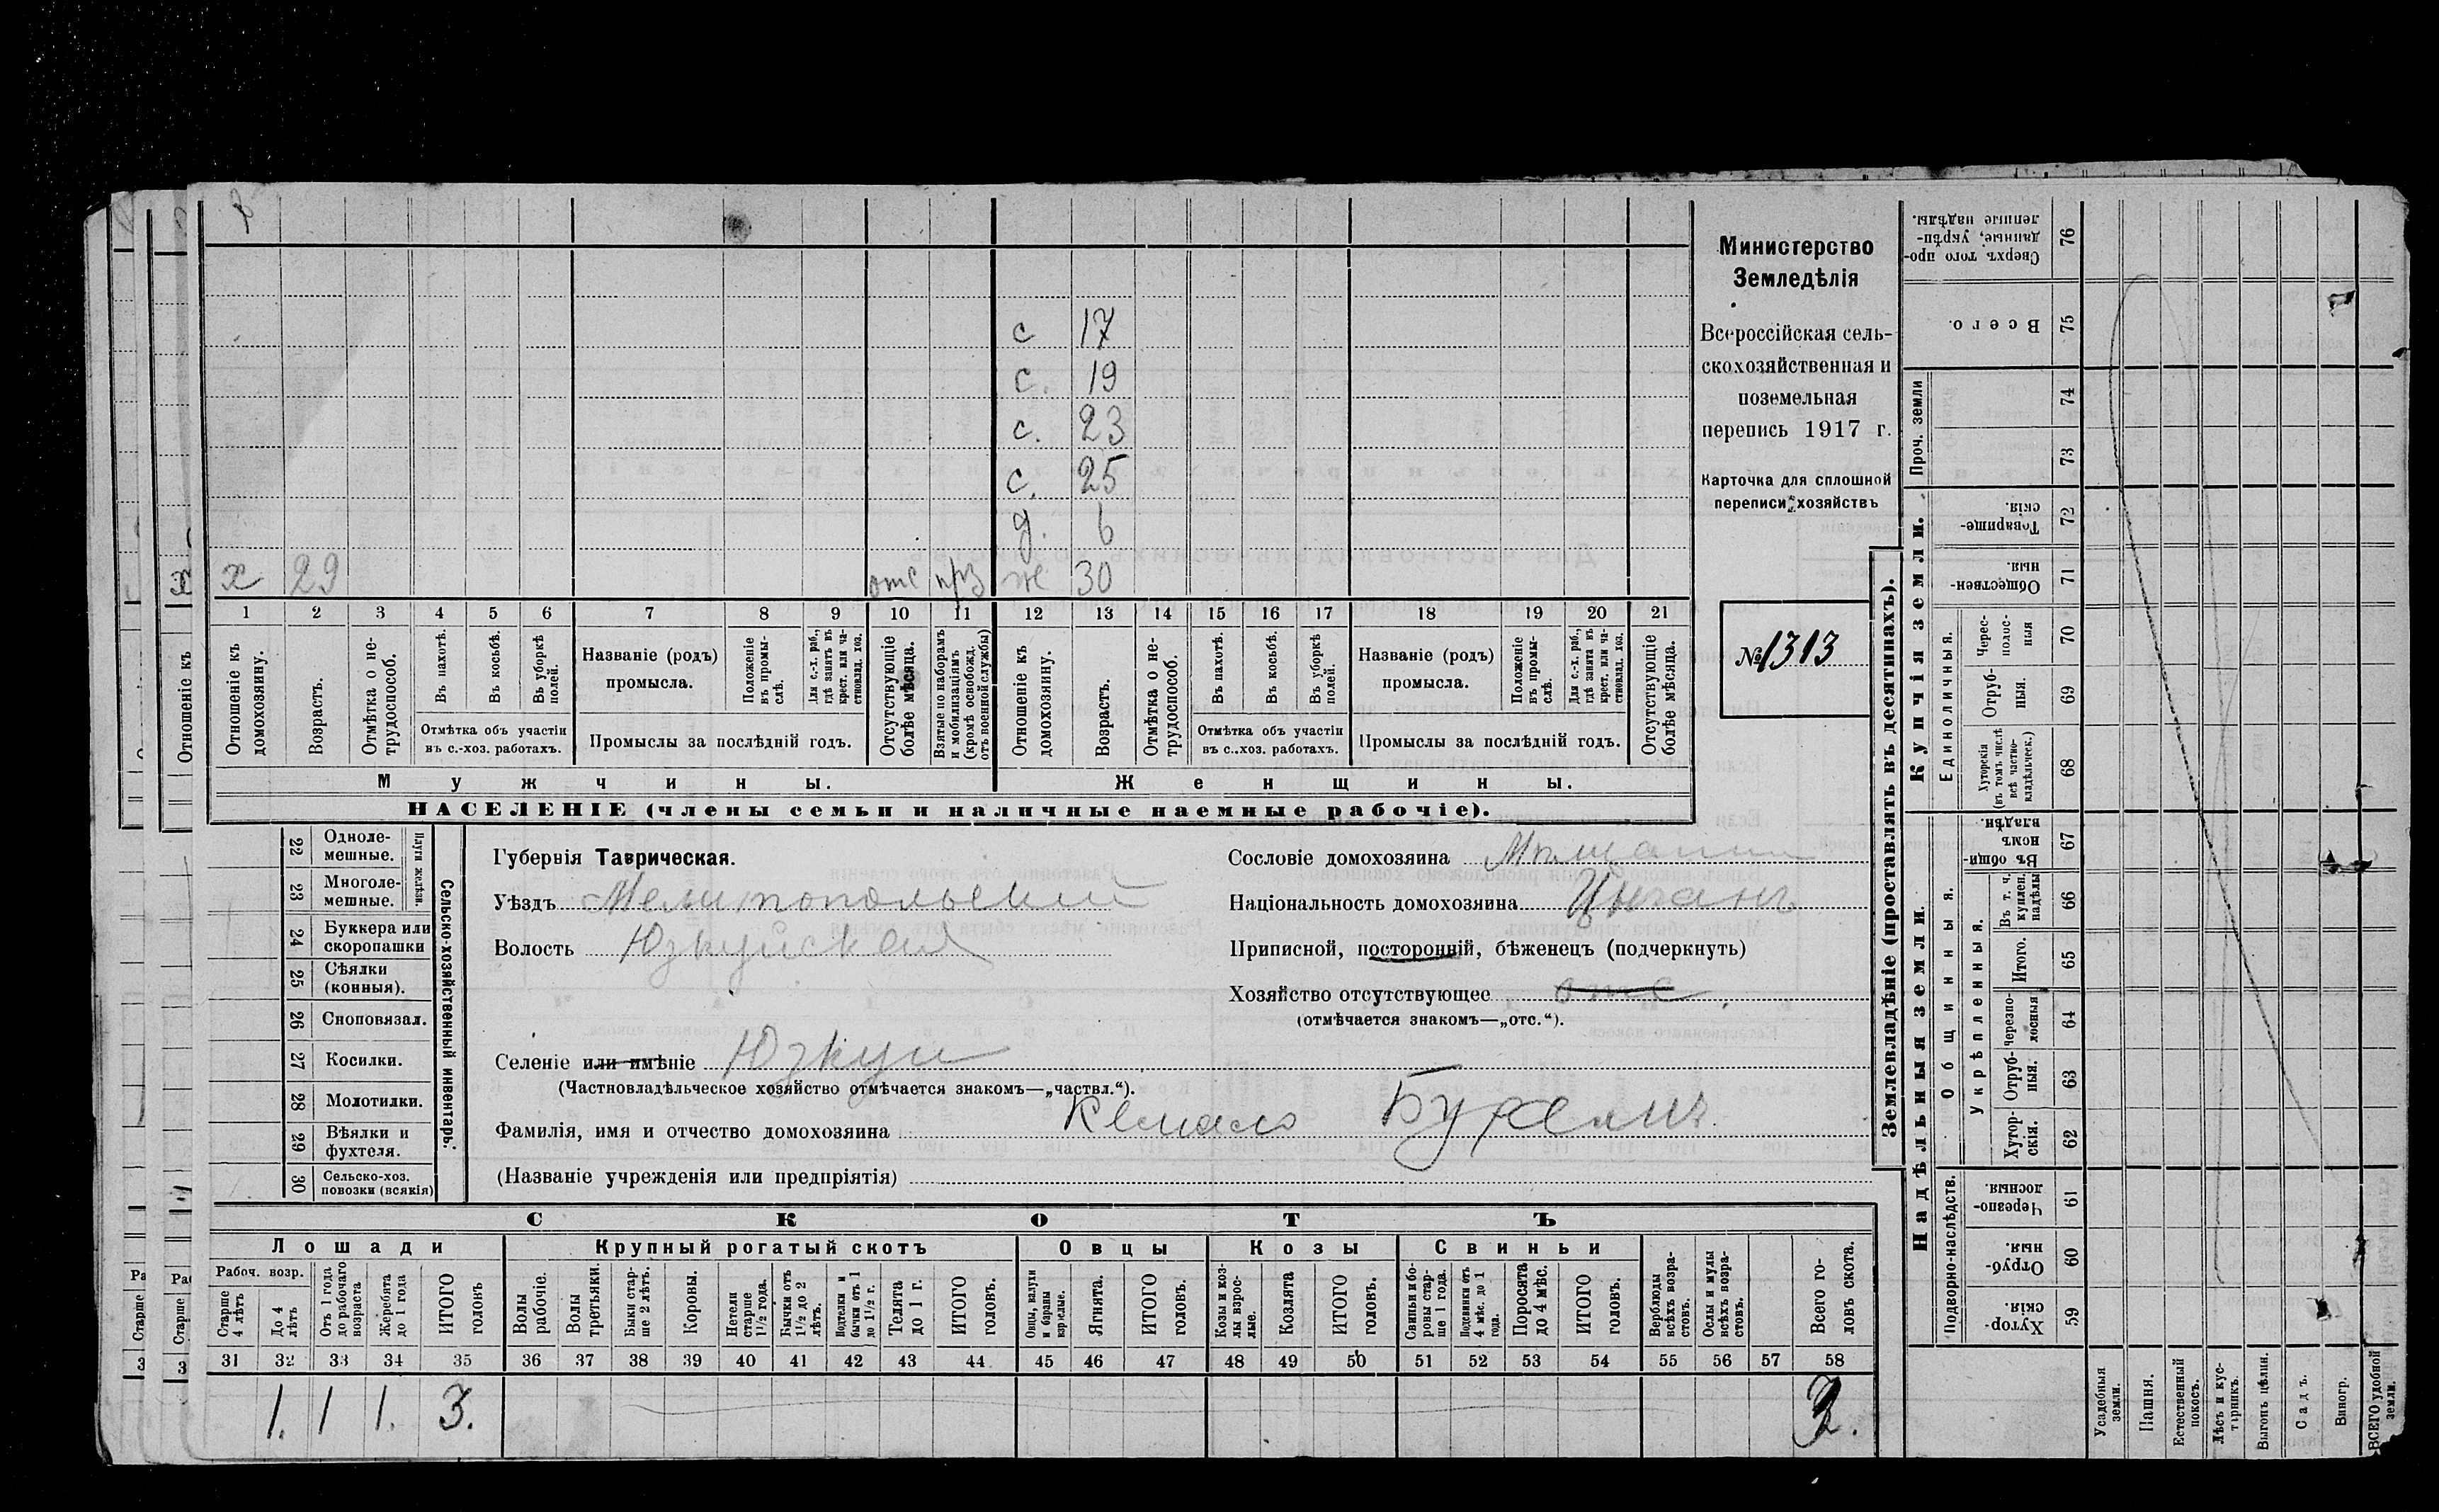 с 17
с. 19
с. 23
с. 25
д. 6
х 29 отс прз ж 30
1 2 3 4 5 6 7 8 9 10 11 12 13 14 15 16 17 18 19 20 21
Отношеніе къ домохозяину.
Возрастъ.
Отмѣтка о нетрудоспособ.
Въ пахотѣ.
Въ косьбѣ.
Въ уборкѣ полей.
Отмѣтка объ участіи
въ с.-хоз. работахъ.
Названіе (родъ)
промысла.
Положеніе въ промыслѣ.
Для с.-х. раб., гдѣ занятъ въ крест. или частновлад. хоз.
Промыслы за послѣдній годъ.
Отсутствующіе болѣе мѣсяца.
Взятые по наборамъ и мобилизаціямъ (кромѣ освобожд. отъ военной службы)
Отношеніе къ домохозяину.
Возрастъ.
Отмѣтка о нетрудоспособ.
Въ пахотѣ.
Въ косьбѣ.
Въ уборкѣ полей.
Отмѣтка объ участіи
въ с.-хоз. работахъ.
Названіе (родъ)
промысла.
Положеніе въ промыслѣ.
Для с.-х. раб., гдѣ занята въ крест. или частновлад. хоз.
Промыслы за послѣдній годъ.
Отсутствующіе болѣе мѣсяца.
Мужчины. Женщины.
НАСЕЛЕНІЕ (члены семьи и наличные наемные рабочіе).
Министерство
Земледѣлія
Всероссійская сель-
скохозяйственная и
поземельная
перепись 1917 г.
Карточка для сплошной
переписи хозяйствъ
№ 1313
22 Одноле-
мешные.
23 Многоле-
мешные.
Плуги желѣзн.
24 Буккера или
скоропашки
25 Сѣялки
(конныя).
26 Сноповязал.
27 Косилки.
28 Молотилки.
29 Вѣялки и
фухтеля.
30 Сельско-хоз.
повозки (всякія)
Сельско-хозяйственный инвентарь.
Губернія Таврическая.
Уѣздъ Мелитопольский
Волость Юзкуйская
Селеніе или имѣніе Юзкуи
(Частновладѣльческое хозяйство отмѣчается знакомъ—„частвл.“).
Сословіе домохозяина Мѣщанин
Національность домохозяина Цыганъ
Приписной, посторонній, бѣженецъ (подчеркнуть)
Хозяйство отсутствующее отс.
(отмѣчается знакомъ—„отс.“).
Фамилія, имя и отчество домохозяина
(Названіе учрежденія или предпріятія)
СКОТЪ
Лошади
Крупный рогатый скотъ
Овцы
Козы
Свиньи
Рабоч. возр.
Старше 4 лѣтъ
До 4 лѣтъ
Отъ 1 года до рабочаго возраста
Жеребята до 1 года
ИТОГО головъ
Волы рабочіе.
Волы третьяки.
Быки старше 2 лѣтъ.
Коровы.
Нетели старше 1½ года.
Бычки отъ 1½ до 2 лѣтъ.
Подтелки и бычки отъ 1 до 1½ г.
Телята до 1 г.
ИТОГО головъ.
Овцы, валухи и бараны взрослые.
Ягнята.
ИТОГО головъ.
Козы и козлы взрослые.
Козлята
ИТОГО головъ.
Свиньи и боровы старше 1 года.
Подсвинки отъ 4 мѣс. до 1 года.
Поросята до 4 мѣс.
ИТОГО головъ.
Верблюды всѣхъ возрастовъ.
Ослы и мулы всѣхъ возрастовъ.
Всего головъ скота.
31 32 33 34 35 36 37 38 39 40 41 42 43 44 45 46 47 48 49 50 51 52 53 54 55 56 57 58
1. 1 1. 3. 3.
Землевладѣніе (проставлять въ десятинахъ).
Купчія земли.
Надѣльныя земли.
Сверхъ того проданные, укрѣпленные надѣлы. 76
Всего. 75
Проч. земли 74
73
Товарищескія. 72
Общественныя. 71
Единоличныя.
Черес-
полос-
ныя 70
Отруб-
ныя. 69
Хуторскія (въ томъ числѣ всѣ частновладѣльческ.) 68
Общинныя.
Въ общинномъ владѣн. 67
Въ т. ч. куплен. надѣлы 66
Укрѣпленныя.
Итого. 65
Черезполосныя 64
Отруб-
ныя. 63
Хутор-
скія. 62
Подворно-наслѣдств.
Черезполосныя. 61
Отрубныя. 60
Хуторскія. 59
Усадебныя земли.
Пашня.
Естественный покосъ.
Лѣсъ и кустарникъ.
Выгонъ цѣлин.
Садъ.
Виногр.
ВСЕГО удобной земли.
Отношеніе къ
Отношеніе къ
Старше
Старше